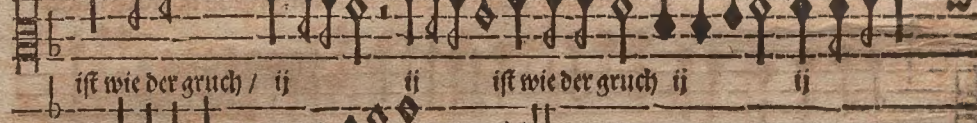 ist wie der gruch / ij ij ist wie der gruch ij ij